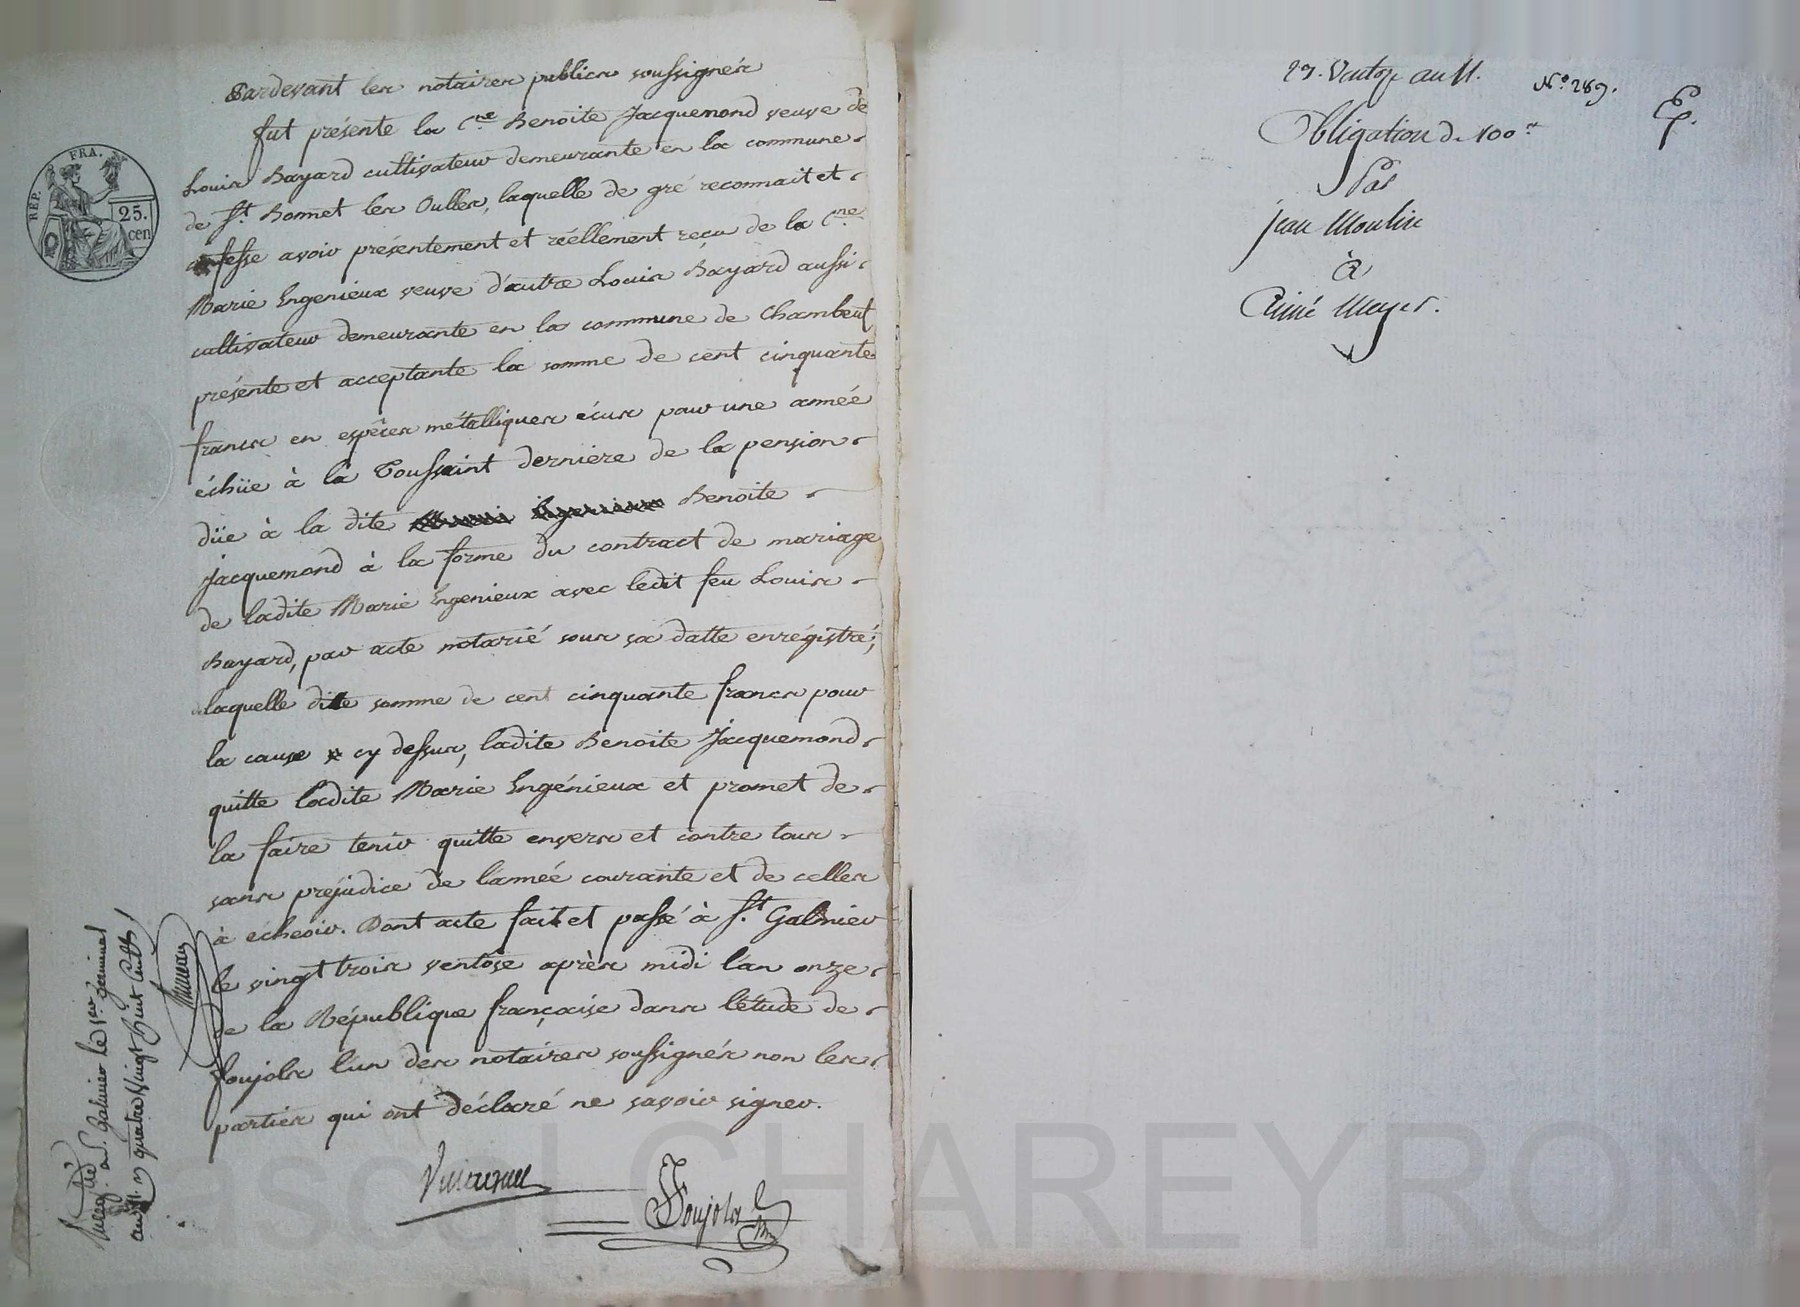 Pardevant les notaires publics soussignés
fut présente la C.ne Benoite Jacquemond veuve de
Louis Bayard cultivateur demeurante en la commune
de S.t Bonnet les Oulles, laquelle de gré reconnait et
confesse avoir présentement et réellement reçu de la C.ne
Marie Ingenieux veuve d'autre Louis Bayard aussi
cultivateur demeurante en la commune de Chambeuf
présente et acceptante la somme de cent cinquante
francs en espèces métalliques écus pour une année
échüe à la Toussaint dernière de la pension
düe à la dite Benoite
Jacquemond à la forme du contract de mariage
de ladite Marie Ingenieux avec ledit feu Louis
Bayard, par acte notarié sous sa datte enrégistré;
de laquelle ditte somme de cent cinquante francs pour
la cause cy dessus, ladite Benoite Jacquemond
quitte ladite Marie Ingénieux et promet de
la faire tenir quitte envers et contre tous
sans préjudice de l'année courante et de celles
à écheoir. Dont acte fait et passé à S.t Galmier
le vingt trois ventôse après midi l'an onze
de la République française dans l'étude de
Foujols l'un des notaires soussignés non les
parties qui ont déclaré ne savoir signer.
Foujols
à S. Galmier le 1.er Germinal
an 11. quatre vingt huit cent.
REP. FRA.
25.
cen
23. Ventose an 11.
N.o 289.
Obligation de 100
Par
Jean Moulin
à
Aimé Meyer.
Pascal CHAREYRON